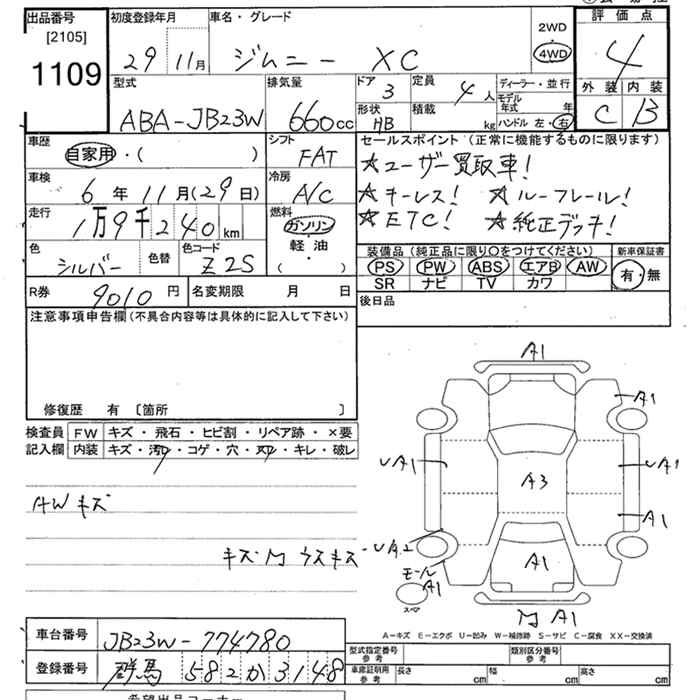 出品番号
[2105]
1109
初度登録年月
29 11月
車名・グレード
ジムニー XC
2WD
4WD
評価点
4
外装 内装
C B
型式
ABA-JB23W
排気量
660cc
ドア
3
定員
4人
形状
HB
積載
kg
ディーラー・並行
モデル年式 年
ハンドル 左・右
車歴
自家用・( )
シフト
FAT
車検
6年11月(29日)
冷房
A/C
走行
1万9千240km
燃料
ガソリン
軽油
( ・ )
色
シルバー
色替
色コード
Z2S
セールスポイント(正常に機能するものに限ります)
☆ユーザー買取車!
☆キーレス! ☆ルーフレール!
☆ETC! ☆純正デッキ!
装備品(純正品に限り○をつけてください)
PS PW ABS エアB AW
SR ナビ TV カワ
新車保証書
有・無
R券
9010円
名変期限 月 日
後日品
注意事項申告欄(不具合内容等は具体的に記入して下さい)
修復歴 有 〔箇所 〕
検査員記入欄
FW キズ・飛石・ヒビ割・リペア跡・×要
内装 キズ・汚レ・コゲ・穴・スレ・キレ・破レ
AWキズ
キズ 内 ウスキズ
A1
A1
UA1
A3
UA1
A1
UA2
モール A1
A1
スペア
内 A1
A-キズ E-エクボ U-凹み W-補修跡 S-サビ C-腐食 XX-交換済
車台番号
JB23W-774780
登録番号
群馬 582 か 3148
型式指定番号 参考
類別区分番号 参考
車庫証明用 参考
長さ cm
幅 cm
高さ cm
希望出品コーナー